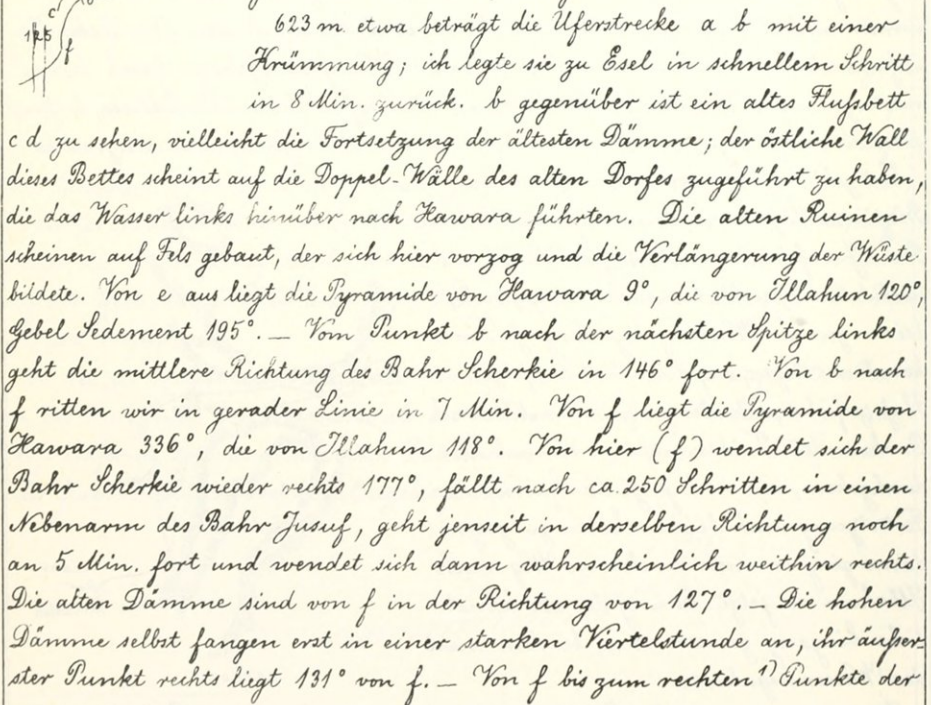 c
125
f
623 m. etwa beträgt die Uferstrecke a b mit einer
Krümmung; ich legte sie zu Esel in schnellem Schritt
in 8 Min. zurück. b gegenüber ist ein altes Flußbett
c d zu sehen, vielleicht die Fortsetzung der ältesten Dämme; der östliche Wall
dieses Bettes scheint auf die Doppel-Wälle des alten Dorfes zugeführt zu haben,
die das Wasser links hinüber nach Hawara führten. Die alten Ruinen
scheinen auf Fels gebaut, der sich hier vorzog und die Verlängerung der Wüste
bildete. Von e aus liegt die Pyramide von Hawara 9°, die von Illahun 120°,
Gebel Sedement 195°. — Vom Punkt b nach der nächsten Spitze links
geht die mittlere Richtung des Bahr Scherkie in 146° fort. Von b nach
f ritten wir in gerader Linie in 7 Min. Von f liegt die Pyramide von
Hawara 336°, die von Illahun 118°. Von hier (f) wendet sich der
Bahr Scherkie wieder rechts 177°, fällt nach ca. 250 Schritten in einen
Nebenarm des Bahr Jusuf, geht jenseit in derselben Richtung noch
an 5 Min. fort und wendet sich dann wahrscheinlich weithin rechts.
Die alten Dämme sind von f in der Richtung von 127°. — Die hohen
Dämme selbst fangen erst in einer starken Viertelstunde an, ihr äußer-
ster Punkt rechts liegt 131° von f. — Von f bis zum rechten ¹⁾ Punkte der